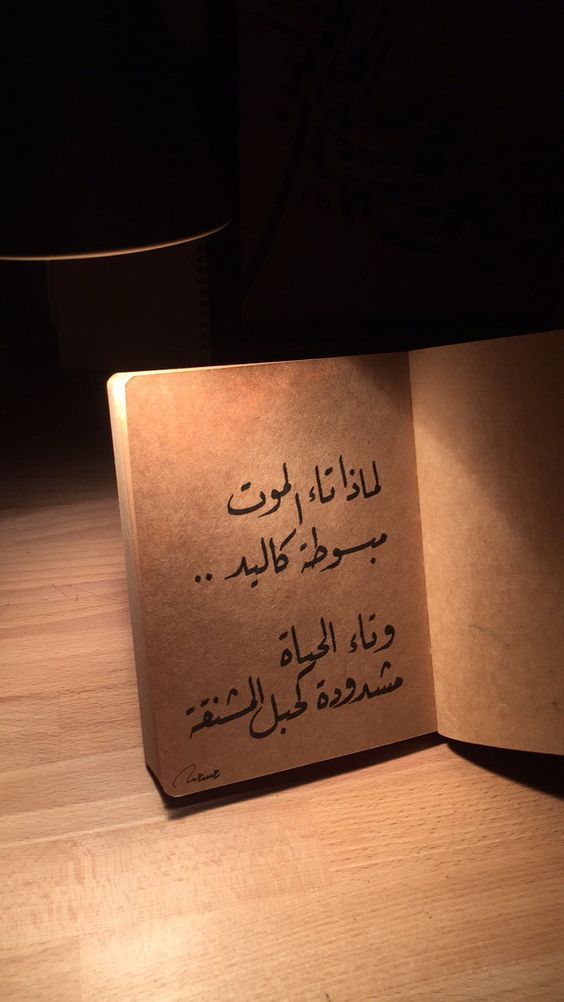 لماذا تاء الموت
مبسوطة كاليد ..
وتاء الحياة
مشدودة كحبل المشنقة